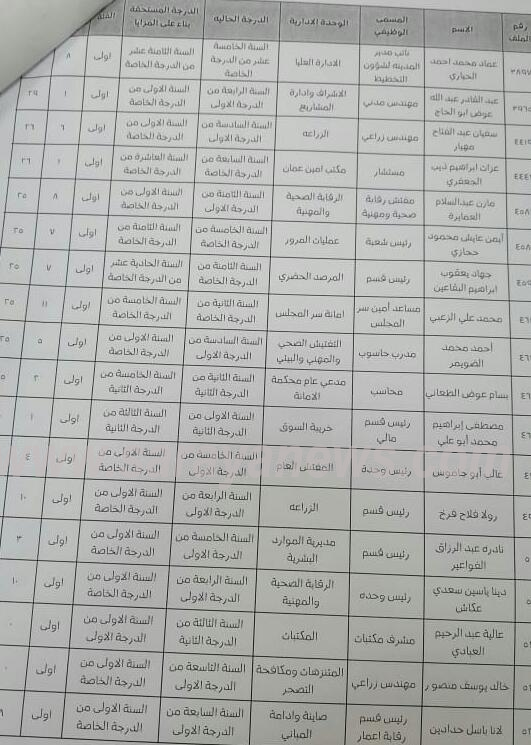 رقم الملف الاسم المسمى الوظيفي الوحدة الادارية الدرجة الحالية الدرجة المستحقة بناء على المزايا الفئة
٣٨٩٧ عماد محمد احمد الحياري نائب مدير المدينه لشؤون التخطيط الادارة العليا السنة الخامسة عشر من الدرجة الخاصة السنة الثامنة عشر من الدرجة الخاصة اولى ٨
٣٩٦٥ عبد القادر عبد الله عوض ابو الحاج مهندس مدني الاشراف وادارة المشاريع السنة الرابعة من الدرجة الاولى السنة الاولى من الدرجة الخاصة اولى ١ ٢٩
٤٤١٥ سفيان عبد الفتاح مهيار مهندس زراعي الزراعه السنة السادسة من الدرجة الاولى السنة الاولى من الدرجة الخاصة اولى ٦ ٢٦
٤٤٤ عزات ابراهيم ذيب الجعفري مستشار مكتب امين عمان السنة السابعة من الدرجة الخاصة السنة العاشرة من الدرجة الخاصة اولى ٢٦
٤٥٨ مازن عبدالسلام العمايرة مفتش رقابة صحية ومهنية الرقابة الصحية والمهنية السنة الثامنة من الدرجة الاولى السنة الاولى من الدرجة الخاصة اولى ٨ ٢٥
٤٥٨ أيمن عايش محمود حجازي رئيس شعبة عمليات المرور السنة الخامسة من الدرجة الخاصة السنة الثامنة من الدرجة الخاصة اولى ٧ ٢٥
٤٥٩ جهاد يعقوب ابراهيم البقاعين رئيس قسم المرصد الحضري السنة الثامنة من الدرجة الخاصة السنة الحادية عشر من الدرجة الخاصة اولى ٧ ٢٥
٤٦ محمد علي الزعبي مساعد أمين سر المجلس امانة سر المجلس السنة الثانية من الدرجة الخاصة السنة الخامسة من الدرجة الخاصة اولى ١١ ٢٥
٤٦ أحمد محمد الضويمر مدرب حاسوب التفتيش الصحي والمهني والبيئي السنة السادسة من الدرجة الاولى السنة الاولى من الدرجة الخاصة اولى ٥ ٢٥
٤٦ بسام عوض الطعاني محاسب مدعي عام محكمة الامانة السنة الثانية من الدرجة الثانية السنة الخامسة من الدرجة الثانية اولى ٢
٤٦ مصطفى إبراهيم محمد أبو علي رئيس قسم مالي ضريبة السوق السنة الاولى من الدرجة الثانية السنة الثالثة من الدرجة الثانية اولى ١
غالب أبو جاموس رئيس وحدة المفتش العام السنة الخامسة من الدرجة الاولى السنة الاولى من الدرجة الخاصة اولى ٤
رولا فلاح فرخ رئيس قسم الزراعه السنة الرابعة من الدرجة الأولى السنة الاولى من الدرجة الخاصة اولى ١٠
نادره عبد الرزاق الفواعير رئيس قسم مديرية الموارد البشرية السنة الخامسة من الدرجة الاولى السنة الاولى من الدرجة الخاصة اولى ٣
دينا ياسين سعدي عكاش رئيس وحده الرقابة الصحية والمهنية السنة الرابعة من الدرجة الاولى السنة الاولى من الدرجة الخاصة اولى ١٠
عالية عبد الرحيم العبادي مشرف مكتبات المكتبات السنة الثالثة من الدرجة الثانية السنة الاولى من الدرجة الاولى اولى
خالد يوسف منصور مهندس زراعي المتنزهات ومكافحة التصحر السنة التاسعة من الدرجة الاولى السنة الاولى من الدرجة الخاصة اولى
لانا باسل حدادين رئيس قسم رقابة اعمار صاينة وادامة المباني السنة السابعة من الدرجة الاولى السنة الاولى من الدرجة الخاصة اولى